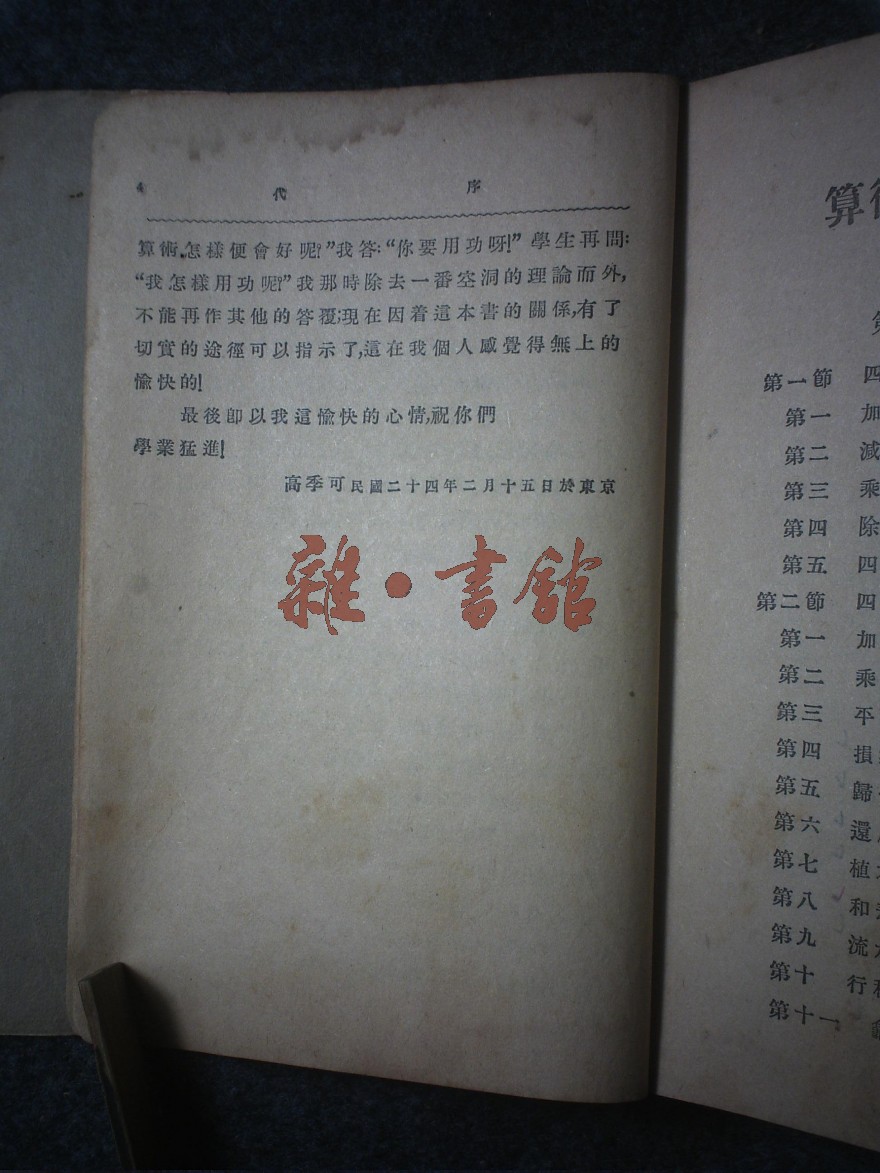 4 代 序
算術,怎樣便會好呢?”我答:“你要用功呀!”學生再問:
“我怎樣用功呢?”我那時除去一番空洞的理論而外,
不能再作其他的答覆;現在因着這本書的關係,有了
切實的途徑可以指示了,這在我個人感覺得無上的
愉快的!
最後卽以我這愉快的心情,祝你們
學業猛進!
高季可民國二十四年二月十五日於東京
雜·書館
算
第一節 四
第一 加
第二 減
第三 乘
第四 除
第五 四
第二節 四
第一 加
第二 乘
第三 平
第四 損
第五 歸
第六 還
第七 植
第八 和
第九 流
第十 行
第十一